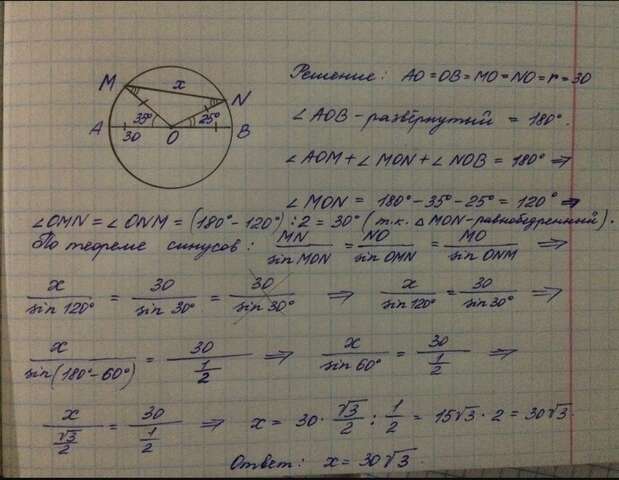 M x N
A 30 35° O 25° B
Решение: AO = OB = MO = NO = r = 30
∠AOB - развёрнутый = 180°.
∠AOM + ∠MON + ∠NOB = 180° ⇒
∠MON = 180° - 35° - 25° = 120° ⇒
∠OMN = ∠ONM = (180° - 120°) : 2 = 30° (т.к. △MON - равнобедренный).
По теореме синусов: MN/sin MON = NO/sin OMN = MO/sin ONM ⇒
x/sin 120° = 30/sin 30° = 30/sin 30° ⇒ x/sin 120° = 30/sin 30° ⇒
x/sin(180° - 60°) = 30/(1/2) ⇒ x/sin 60° = 30/(1/2) ⇒
x/(√3/2) = 30/(1/2) ⇒ x = 30 · √3/2 : 1/2 = 15√3 · 2 = 30√3.
Ответ: x = 30√3.